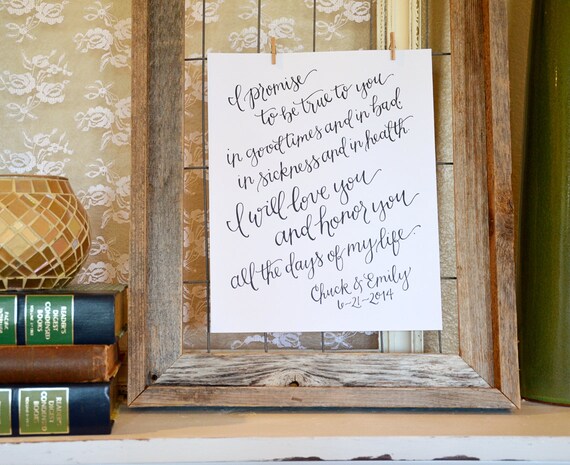 I promise
to be true to you
in good times and in bad,
in sickness and in health.
I will love you
and honor you
all the days of my life
Chuck & Emily
6-21-2014
READER'S
DIGEST
CONDENSED
BOOKS
READER'S
DIGEST
CONDENSED
BOOKS